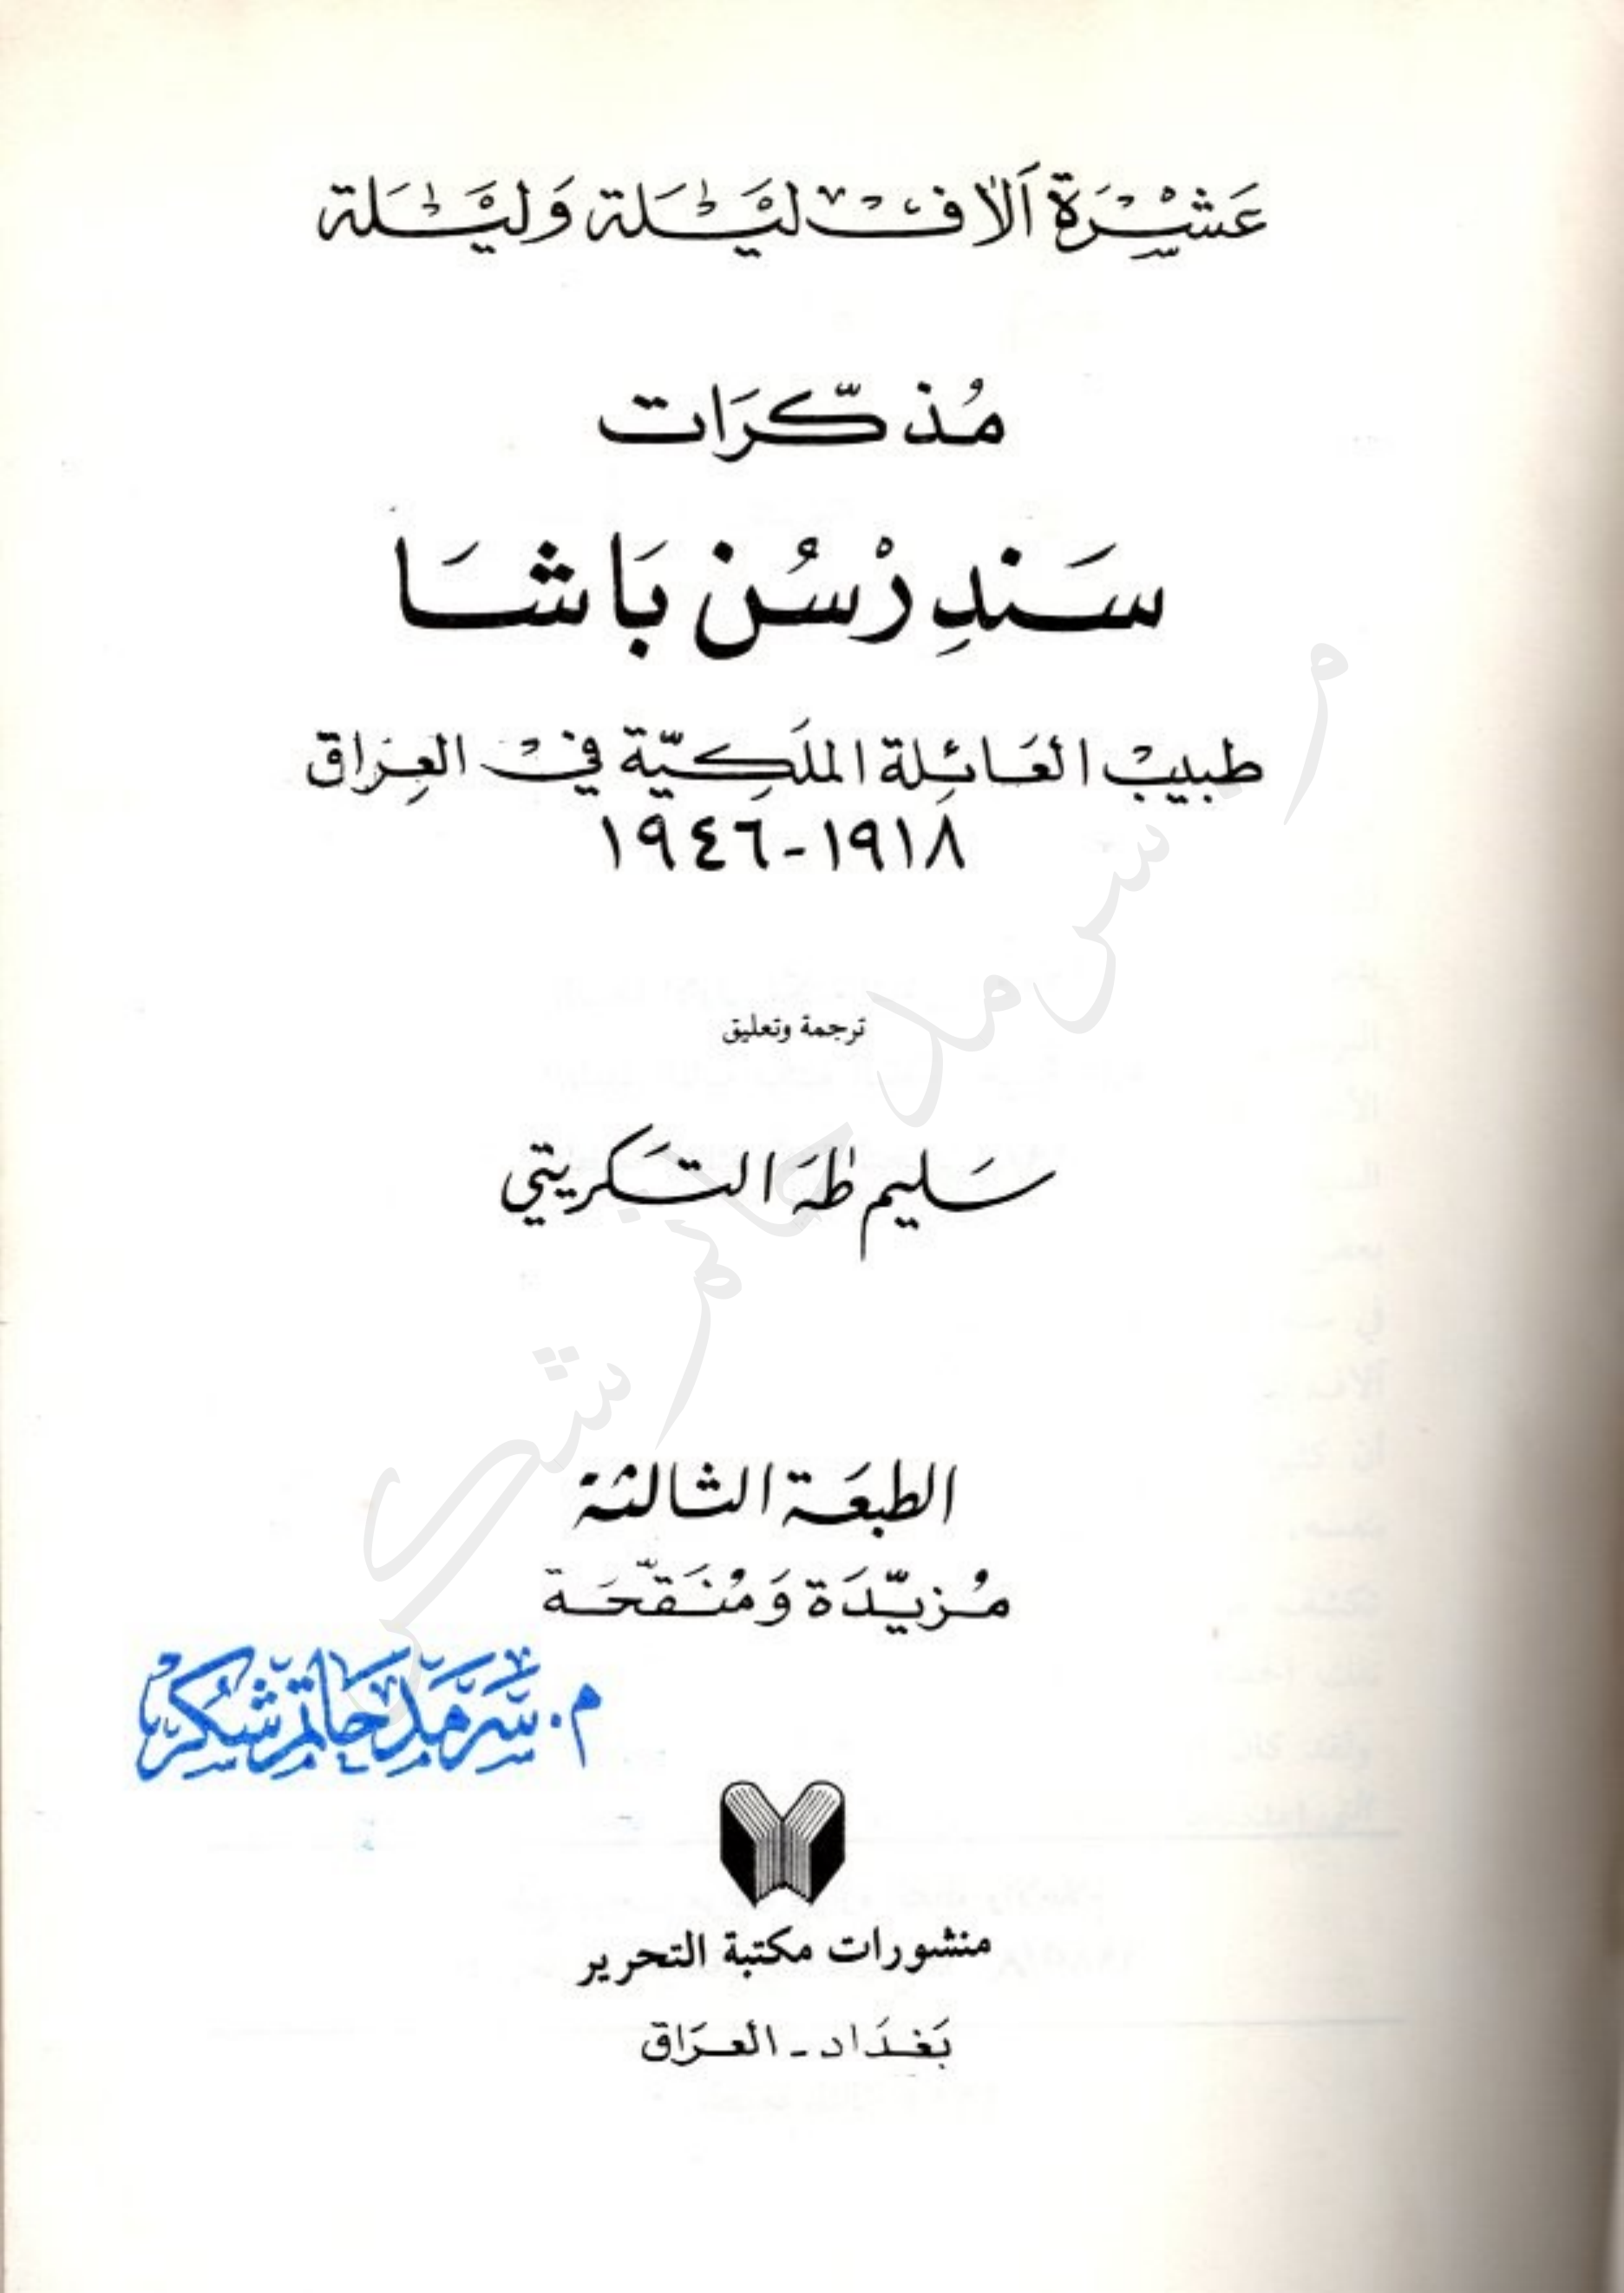 عَشِيْرَة آلاف لَيْلَة وَلَيْلَة
مُذكّرَات
سَندِرْسُن بَاشَا
طبيب العَائِلة الملَكِيّة في العِرَاق
١٩١٨-١٩٤٦
ترجمة وتعليق
سَليم طٰهَ التكريتي
الطبعَة الثالثة
مُزيّدَة وَمُنَقّحَة
م.سَرمَد حَاتم شُكر
منشورات مكتبة التحرير
بَغدَاد - العرَاق
م. سرمد حاتم شكر